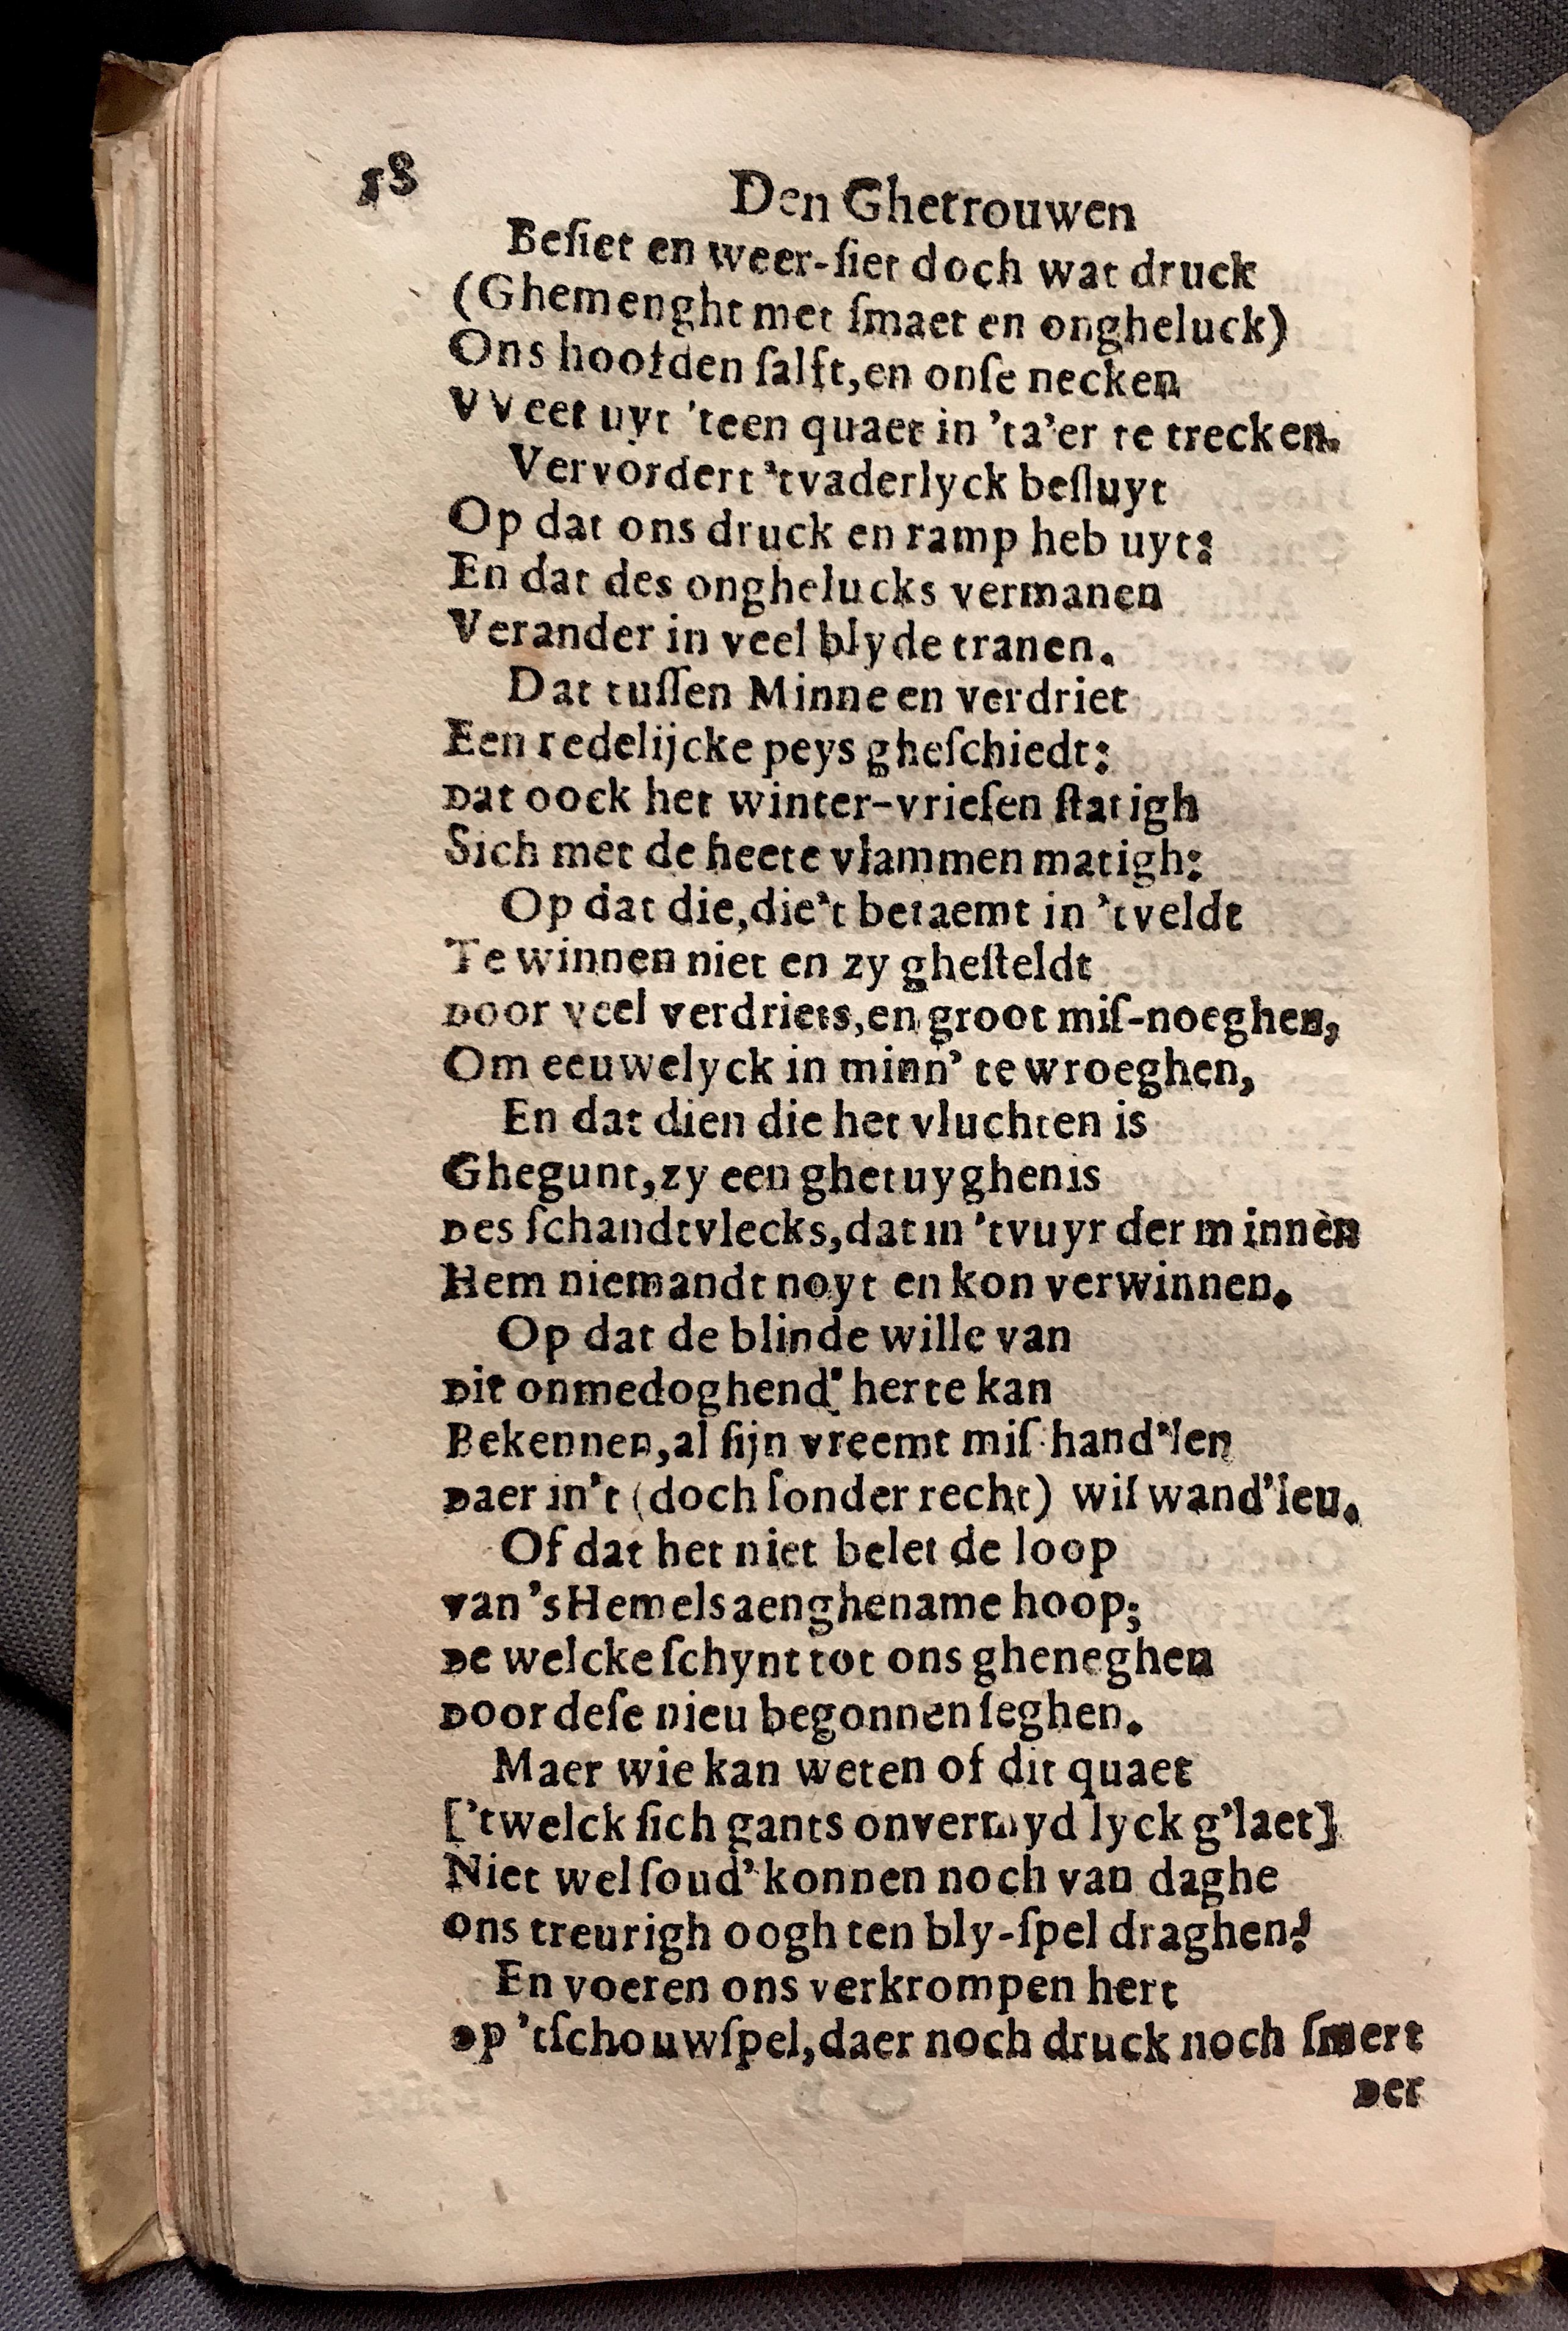 58
Den Ghetrouwen
Beſiet en weer-ſiet doch wat druck
(Ghemenght met ſmaet en ongheluck)
Ons hoofden ſalft, en onſe necken
VVeet uyt 'teen quaet in 'ta'er te trecken.
Vervordert 'tvaderlyck beſluyt
Op dat ons druck en ramp heb uyt:
En dat des onghelucks vermanen
Verander in veel blyde tranen.
Dat tuſſen Minne en verdriet
Een redelijcke peys gheſchiedt:
Dat oock het winter-vrieſen ſtatigh
Sich met de heete vlammen matigh:
Op dat die, die't betaemt in 'tveldt
Te winnen niet en zy gheſteldt
Door veel verdriets, en groot miſ-noeghen,
Om eeuwelyck in minn' te wroeghen,
En dat dien die het vluchten is
Ghegunt, zy een ghetuyghenis
Des ſchandtvlecks, dat in 'tvuyr der minnen
Hem niemandt noyt en kon verwinnen.
Op dat de blinde wille van
Dit onmedoghend' herte kan
Bekennen, al ſijn vreemt miſ-hand'len
Daer in't (doch ſonder recht) wil wand'leu.
Of dat het niet belet de loop
van 's Hemels aenghename hoop;
De welcke ſchynt tot ons gheneghen
Door deſe nieu begonnen ſeghen.
Maer wie kan weten of dit quaet
['twelck ſich gants onvermydlyck g'laet]
Niet wel ſoud' konnen noch van daghe
Ons treurigh oogh ten bly-ſpel draghen?
En voeren ons verkrompen hert
Op 'tſchouwſpel, daer noch druck noch ſmert
Der